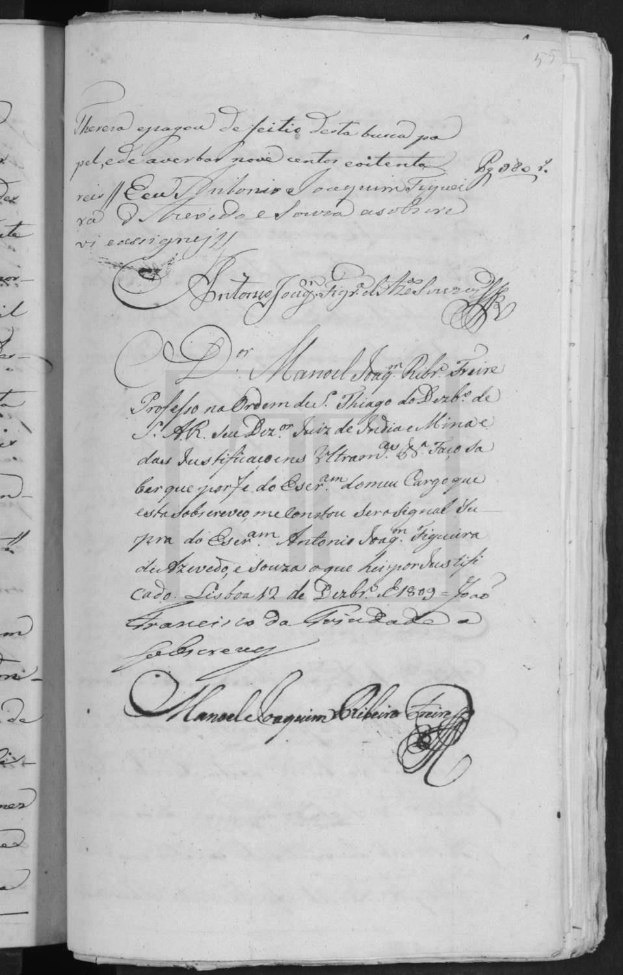 55
Thereza epagou de feitio desta busca pa
pel, e de averbar nove centos e oitenta
reis // E eu Antonio Joaquim Figuei
ra d'Azevedo e Souza a sobscre
vi e assignej //
Rs 980 r.
Antonio Joaq.m Figr.a d'Az.do Souza
D.or Manoel Joaq.m Ribr.o Freire
Professo na Ordem de S. Thiago do Dezbo. de
S. A. R. Seu Dez.or Juiz de India e Mina e
das Justificaçoens Ultram.as &.a Faço sa
ber que por fé do Escr.am do meu Cargo que
esta sobscreveo, me constou ser o signal Su-
pra do Escr.am Antonio Joaq.m Figueira
de Azevedo, e Souza o que hei por Justifi
cado. Lisboa 12 de Dezbr.o de 1809 = João
Francisco da Trindade a
sobscrevy
Manoel Joaquim Ribeiro Freire